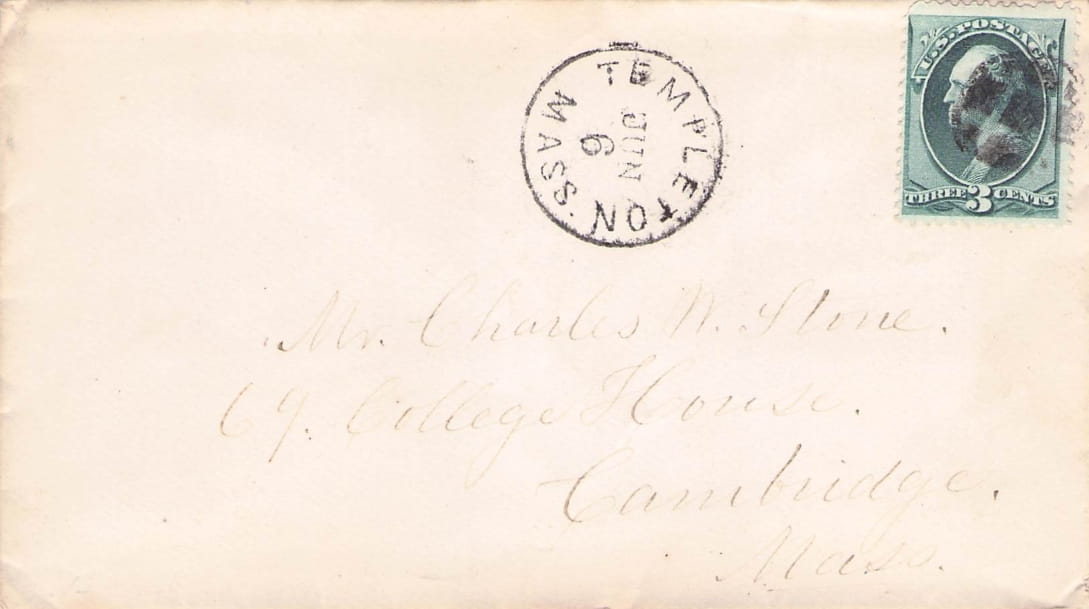 TEMPLETON MASS.
JUN
6
U.S. POSTAGE
THREE 3 CENTS
Mr. Charles W. Stone.
69. College House.
Cambridge.
Mass.